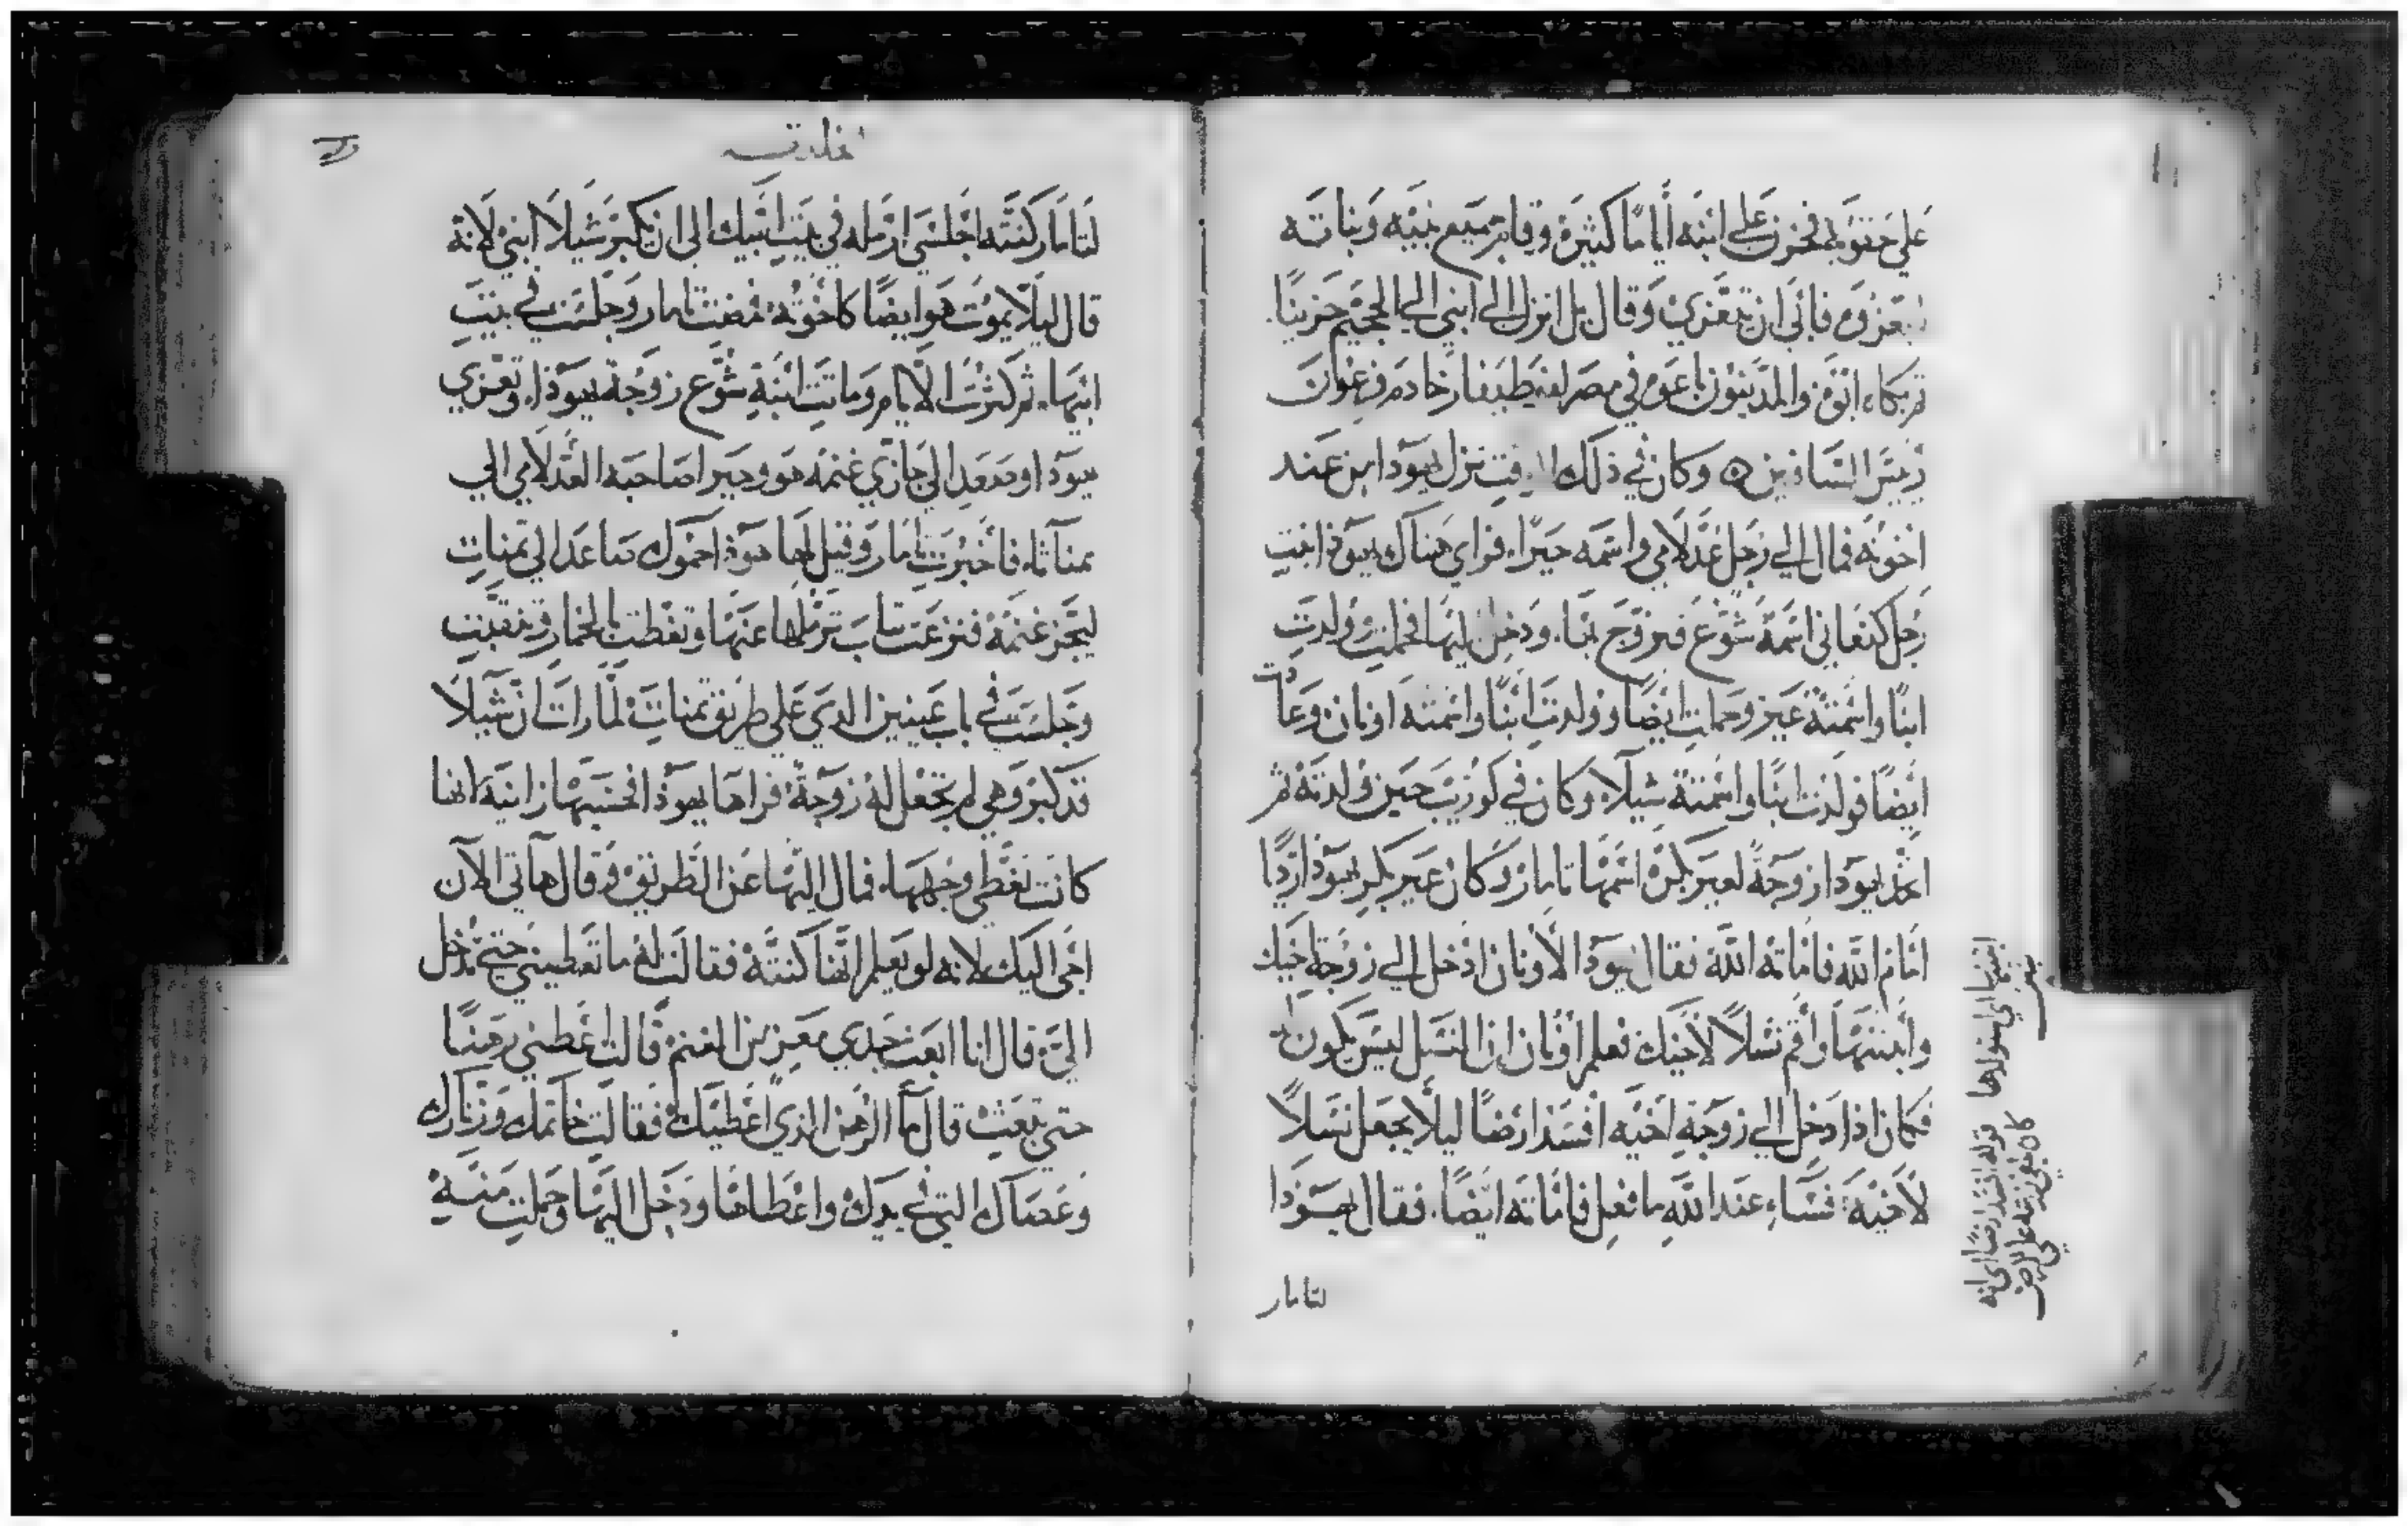 على حقويه فحزن على ابنه أيامًا كثيرة وقام جميع بنيه وبناته
ليعزوه فأبى ان يتعزى وقال بل انزل الى ابني الى الجحيم حزينًا
ثم بكاه ابوه والمدينيون باعوه في مصر لفيطيفار خادم فرعون
رييس السيافين وكان في ذلك الوقت نزل يهوذا من عند
اخوته فمال الى رجل عدلامي واسمه حيرا فراى هناك يهوذا ابنت
رجل كنعاني اسمه شوع فتزوج بها ودخل اليها فحملت وولدت
ابنًا واسمته عير وحملت ايضًا وولدت ابنًا واسمته اونان وعادت
ايضًا فولدت ابنًا واسمته شيلا وكان في كوزيب حين ولدته ثم
اتخذ يهوذا زوجةً لعير بكره اسمها تامار وكان عير بكر يهوذا رديًا
امام الله فاماته الله فقال يهوذا لاونان ادخل الى زوجة اخيك
وابتنيها وأقم نسلاً لأخيك فعلم أونان ان النسل ليس يكون له
فكان اذا دخل الى زوجة اخيه افسد ارضًا ليلا يجعل نسلاً
لأخيه فساء عند الله ما فعل فاماته ايضًا فقال يهوذا
لتامار
ابتنيها اي استولدها
قوله افسد ارضًا اي انه
كان يلقي زرعه على الارض
لتامار كنته اجلسي ارمله في بيت ابيك الى ان يكبر شيلا ابني لانه
قال ليلا يموت هو ايضًا كاخوته فمضت تامار وجلست في بيت
ابيها ثم كثرت الايام وماتت ابنة شوع زوجة يهوذا وتعزي
يهوذا وصعد الى جازي غنمه هو وحيرا صاحبه العدلامي الى
تمناثا فأخبرت تامار وقيل لها هوذا حموك صاعدا الى تمنات
ليجز غنمه فنزعت تياب ترملها عنها وتغطت بالخمار وتنقبت
وجلست في باب عينين الذي على طريق تمنات لما رات ان شيلا
قد كبر وهي لم تجعل له زوجة فراها يهوذا فحسبها زانية لانها
كانت تغطي وجهها فمال اليها عن الطريق وقال هاتي الآن
اجي اليك لانه لم يعلم انها كنته فقالت له ما تعطيني حتى تدخل
الي قال انا ابعث جدي معز من الغنم قالت اعطيني رهنًا
حتى تبعث قال ما الرهن الذي اعطيك فقالت خاتمك وزنارك
وعصاك التي في يدك واعطاها ودخل اليها وحملت منه